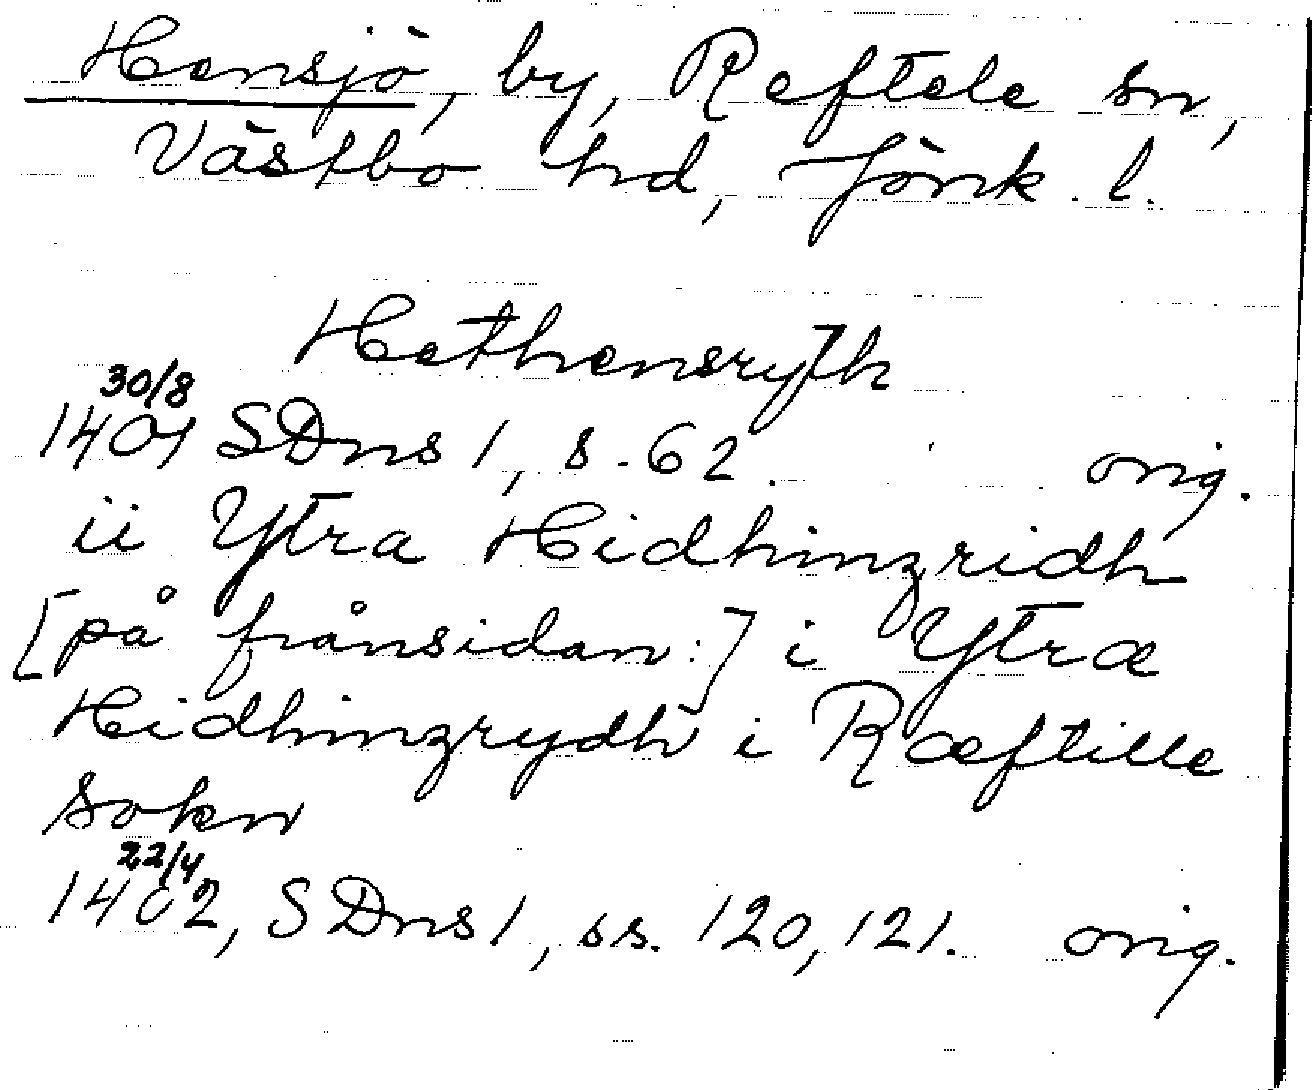 Hensjö, by, Reftele sn,
Västbo hd, Jönk. l.
Hethensryth
30/8
1401 SDns 1, s. 62. orig.
ii Ytra Hidhinzridh
[på frånsidan:] i Ytræ
Hidhinzrydh i Ræftille
sokn
22/4
1402, SDns 1, ss. 120, 121. orig.